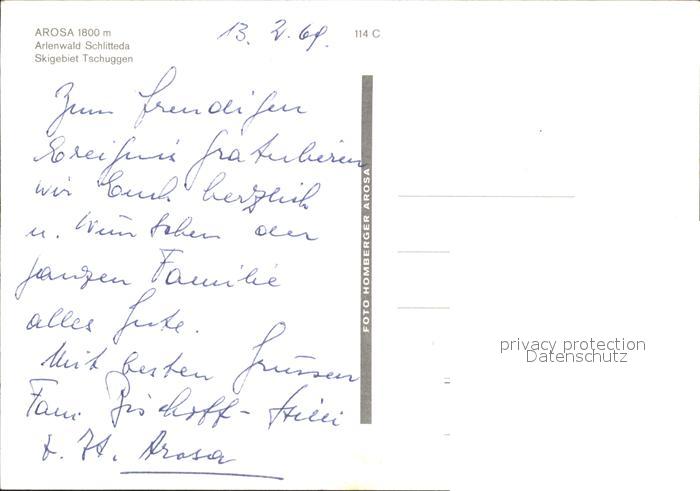 AROSA 1800 m
Arlenwald Schlitteda
Skigebiet Tschuggen
13. 2. 69.
114 C
Zum freudigen
Ereignis gratulieren
wir Euch herzlich
u. wünschen der
ganzen Familie
alles Gute.
Mit besten Grüssen
Fam. Bischoff-
z. Zt. Arosa
FOTO HOMBERGER AROSA
privacy protection
Datenschutz